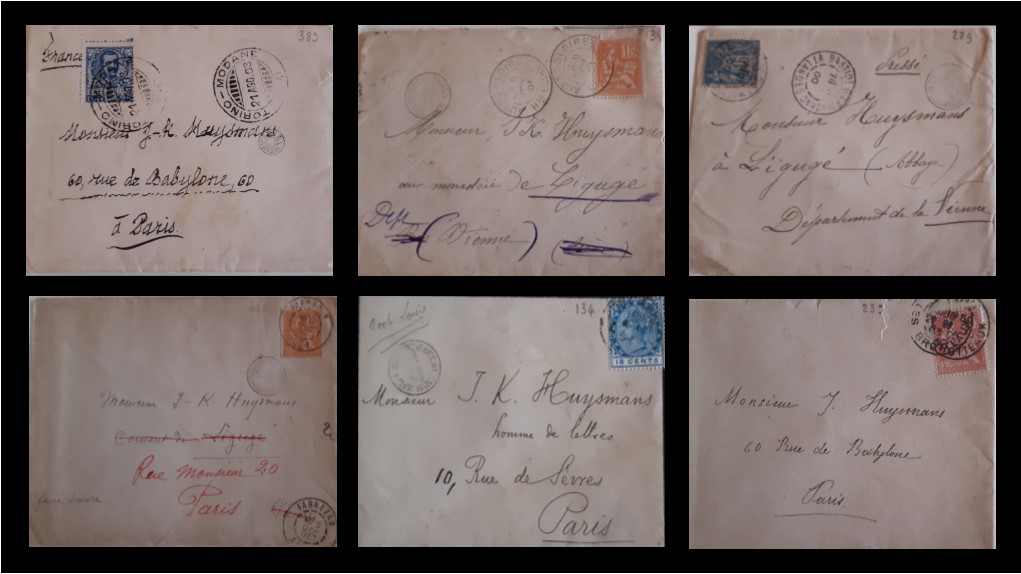 383
France
TORINO - MODANE
21 AGO 03
Monsieur J-K. Huysmans
60, rue de Babylone, 60
à Paris.
Monsieur J.K. Huysmans
au monastère de Ligugé
Dépt
(Vienne)
Pressé
Monsieur Huysmans
à Ligugé (Abbaye)
Département de la Vienne
Monsieur J-K. Huysmans
Couvent de Ligugé
Rue Monsieur 20
Paris
faire suivre
134
Port Louis
18 CENTS
Monsieur J. K. Huysmans
homme de lettres
10, Rue de Sèvres
Paris
BROTTEAUX
Monsieur J. Huysmans
60 Rue de Babylone
Paris.